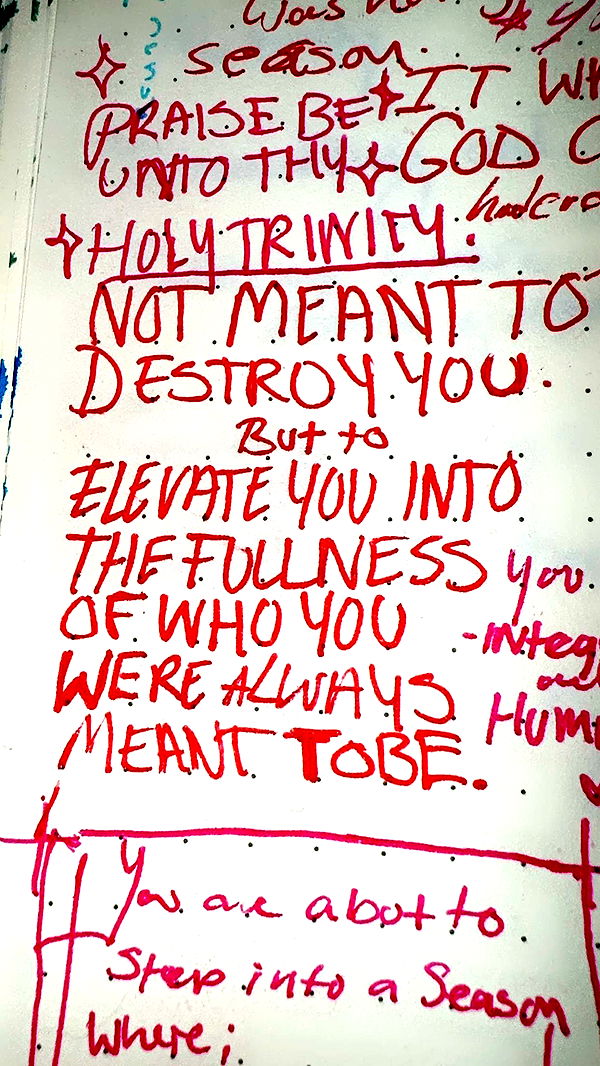 season.
PRAISE BE
UNTO THY
HOLY TRINITY.
NOT MEANT TO
DESTROY YOU.
But to
ELEVATE YOU INTO
THE FULLNESS
OF WHO YOU
WERE ALWAYS
MEANT TO BE.
IT
GOD
You.
You are about to
Step into a Season
Where;